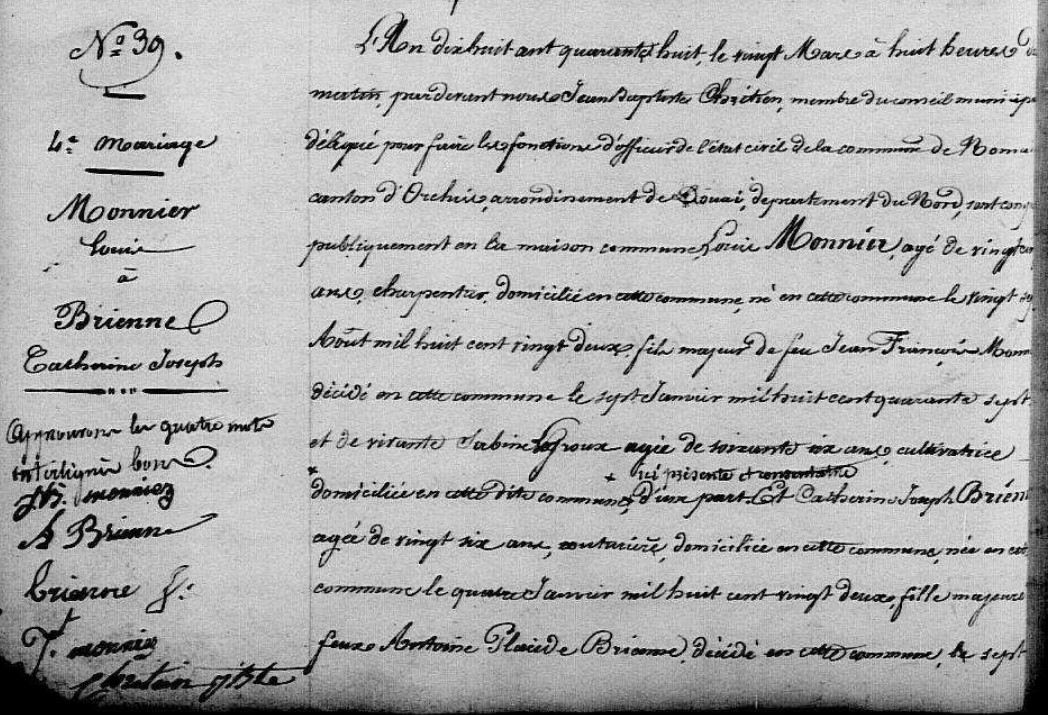 N.º 39.
4.e mariage
Monnier
Louis
à
Brienne
Catherine Joseph
Approuvons les quatre mots
interlignés bons.
monniez
A Brienne
brienne
monniez
L'An dix huit cent quarante huit, le vingt Mars à huit heures du
matin, par devant nous Jean Baptiste Chrétien, membre du conseil municip
délégué pour faire les fonctions d'officier de l'état civil de la commune de Noma
canton d'Orchies, arrondissement de Douai, département du Nord, sont comp
publiquement en la maison commune, Louis Monnier, agé de vingt cinq
ans, charpentier, domicilié en cette commune, né en cette commune le vingt
Août mil huit cent vingt deux, fils majeur de feu Jean François Monn
décédé en cette commune le sept Janvier mil huit cent quarante sept
et de vivante Sabine Legroux agée de soixante six ans, cultivatrice
+ ici présente et consentante
domiciliée en cette dite commune, d'une part. Et Catherine Joseph Brienn
agée de vingt six ans, couturière, domiciliée en cette commune, née en cet
commune le quatre Janvier mil huit cent vingt deux, fille majeure
feux Antoine Placide Brienne, décédé en cette commune, le sept